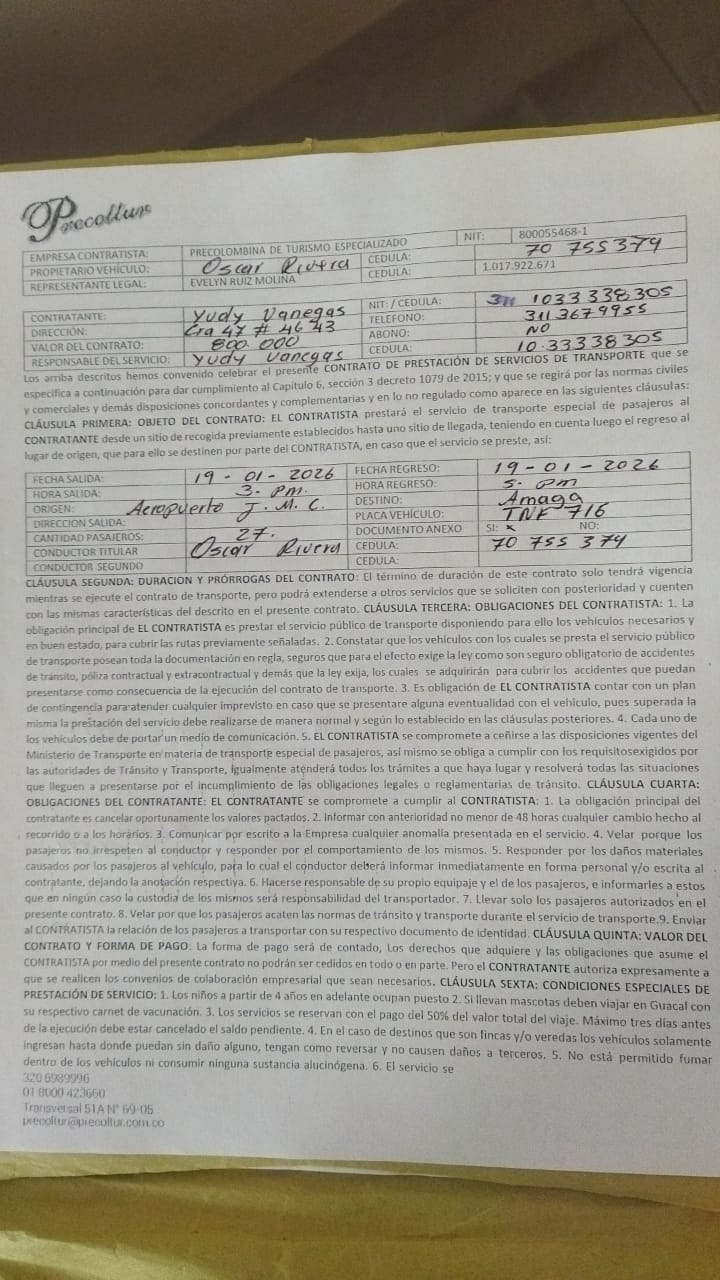 Precoltur
EMPRESA CONTRATISTA: PRECOLOMBINA DE TURISMO ESPECIALIZADO NIT: 800055468-1
PROPIETARIO VEHÍCULO: Oscar Rivera CEDULA: 70 755374
REPRESENTANTE LEGAL: EVELYN RUIZ MOLINA CEDULA: 1.017.922.671
CONTRATANTE: Yudy Vanegas NIT: / CEDULA: 1033338305
DIRECCIÓN: Cra 47 # 46 43 TELEFONO: 3113679955
VALOR DEL CONTRATO: 800.000 ABONO: NO
RESPONSABLE DEL SERVICIO: Yudy Vanegas CEDULA: 10.33338305
Los arriba descritos hemos convenido celebrar el presente CONTRATO DE PRESTACIÓN DE SERVICIOS DE TRANSPORTE que se
especifica a continuación para dar cumplimiento al Capitulo 6, sección 3 decreto 1079 de 2015; y que se regirá por las normas civiles
y comerciales y demás disposiciones concordantes y complementarias y en lo no regulado como aparece en las siguientes cláusulas:
CLÁUSULA PRIMERA: OBJETO DEL CONTRATO: EL CONTRATISTA prestará el servicio de transporte especial de pasajeros al
CONTRATANTE desde un sitio de recogida previamente establecidos hasta uno sitio de llegada, teniendo en cuenta luego el regreso al
lugar de origen, que para ello se destinen por parte del CONTRATISTA, en caso que el servicio se preste, así:
FECHA SALIDA: 19-01-2026 FECHA REGRESO: 19-01-2026
HORA SALIDA: 3-pm. HORA REGRESO: 5-pm
ORIGEN: Aeropuerto J.M.C. DESTINO: Amaga
DIRECCION SALIDA: PLACA VEHÍCULO: TNF 716
CANTIDAD PASAJEROS: 27. DOCUMENTO ANEXO SI: x NO:
CONDUCTOR TITULAR Oscar Rivera CEDULA: 70 755 374
CONDUCTOR SEGUNDO CEDULA:
CLÁUSULA SEGUNDA: DURACION Y PRÓRROGAS DEL CONTRATO: El término de duración de este contrato solo tendrá vigencia
mientras se ejecute el contrato de transporte, pero podrá extenderse a otros servicios que se soliciten con posterioridad y cuenten
con las mismas características del descrito en el presente contrato. CLÁUSULA TERCERA: OBLIGACIONES DEL CONTRATISTA: 1. La
obligación principal de EL CONTRATISTA es prestar el servicio público de transporte disponiendo para ello los vehículos necesarios y
en buen estado, para cubrir las rutas previamente señaladas. 2. Constatar que los vehículos con los cuales se presta el servicio público
de transporte posean toda la documentación en regla, seguros que para el efecto exige la ley como son seguro obligatorio de accidentes
de tránsito, póliza contractual y extracontractual y demás que la ley exija, los cuales se adquirirán para cubrir los accidentes que puedan
presentarse como consecuencia de la ejecución del contrato de transporte. 3. Es obligación de EL CONTRATISTA contar con un plan
de contingencia para atender cualquier imprevisto en caso que se presentare alguna eventualidad con el vehículo, pues superada la
misma la prestación del servicio debe realizarse de manera normal y según lo establecido en las cláusulas posteriores. 4. Cada uno de
los vehículos debe de portar un medio de comunicación. 5. EL CONTRATISTA se compromete a ceñirse a las disposiciones vigentes del
Ministerio de Transporte en materia de transporte especial de pasajeros, así mismo se obliga a cumplir con los requisitosexigidos por
las autoridades de Tránsito y Transporte, igualmente atenderá todos los trámites a que haya lugar y resolverá todas las situaciones
que lleguen a presentarse por el incumplimiento de las obligaciones legales o reglamentarias de tránsito. CLÁUSULA CUARTA:
OBLIGACIONES DEL CONTRATANTE: EL CONTRATANTE se compromete a cumplir al CONTRATISTA: 1. La obligación principal del
contratante es cancelar oportunamente los valores pactados. 2. Informar con anterioridad no menor de 48 horas cualquier cambio hecho al
recorrido o a los horarios. 3. Comunicar por escrito a la Empresa cualquier anomalía presentada en el servicio. 4. Velar porque los
pasajeros no irrespeten al conductor y responder por el comportamiento de los mismos. 5. Responder por los daños materiales
causados por los pasajeros al vehículo, para lo cual el conductor deberá informar inmediatamente en forma personal y/o escrita al
contratante, dejando la anotación respectiva. 6. Hacerse responsable de su propio equipaje y el de los pasajeros, e informarles a estos
que en ningún caso la custodia de los mismos será responsabilidad del transportador. 7. Llevar solo los pasajeros autorizados en el
presente contrato. 8. Velar por que los pasajeros acaten las normas de tránsito y transporte durante el servicio de transporte.9. Enviar
al CONTRATISTA la relación de los pasajeros a transportar con su respectivo documento de identidad. CLÁUSULA QUINTA: VALOR DEL
CONTRATO Y FORMA DE PAGO: La forma de pago será de contado, Los derechos que adquiere y las obligaciones que asume el
CONTRATISTA por medio del presente contrato no podrán ser cedidos en todo o en parte. Pero el CONTRATANTE autoriza expresamente a
que se realicen los convenios de colaboración empresarial que sean necesarios. CLÁUSULA SEXTA: CONDICIONES ESPECIALES DE
PRESTACIÓN DE SERVICIO: 1. Los niños a partir de 4 años en adelante ocupan puesto 2. Si llevan mascotas deben viajar en Guacal con
su respectivo carnet de vacunación. 3. Los servicios se reservan con el pago del 50% del valor total del viaje. Máximo tres días antes
de la ejecución debe estar cancelado el saldo pendiente. 4. En el caso de destinos que son fincas y/o veredas los vehículos solamente
ingresan hasta donde puedan sin daño alguno, tengan como reversar y no causen daños a terceros. 5. No está permitido fumar
dentro de los vehículos ni consumir ninguna sustancia alucinógena. 6. El servicio se
320 6989996
01 8000 423660
Transversal 51A N° 69-05
precoltur@precoltur.com.co